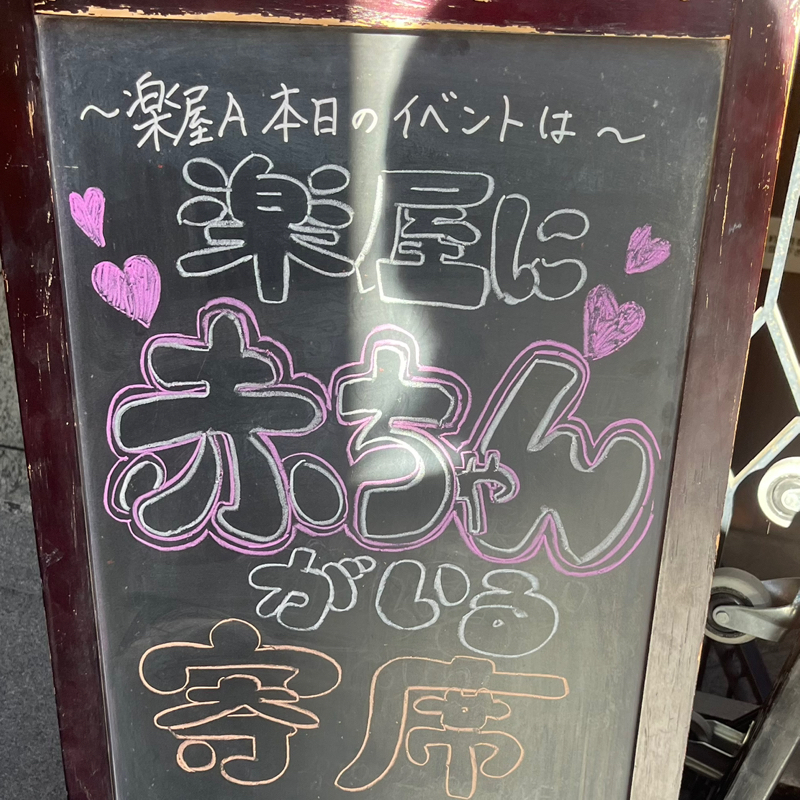 ～楽屋A 本日のイベントは～
楽屋に
赤ちゃん
がいる
寄席